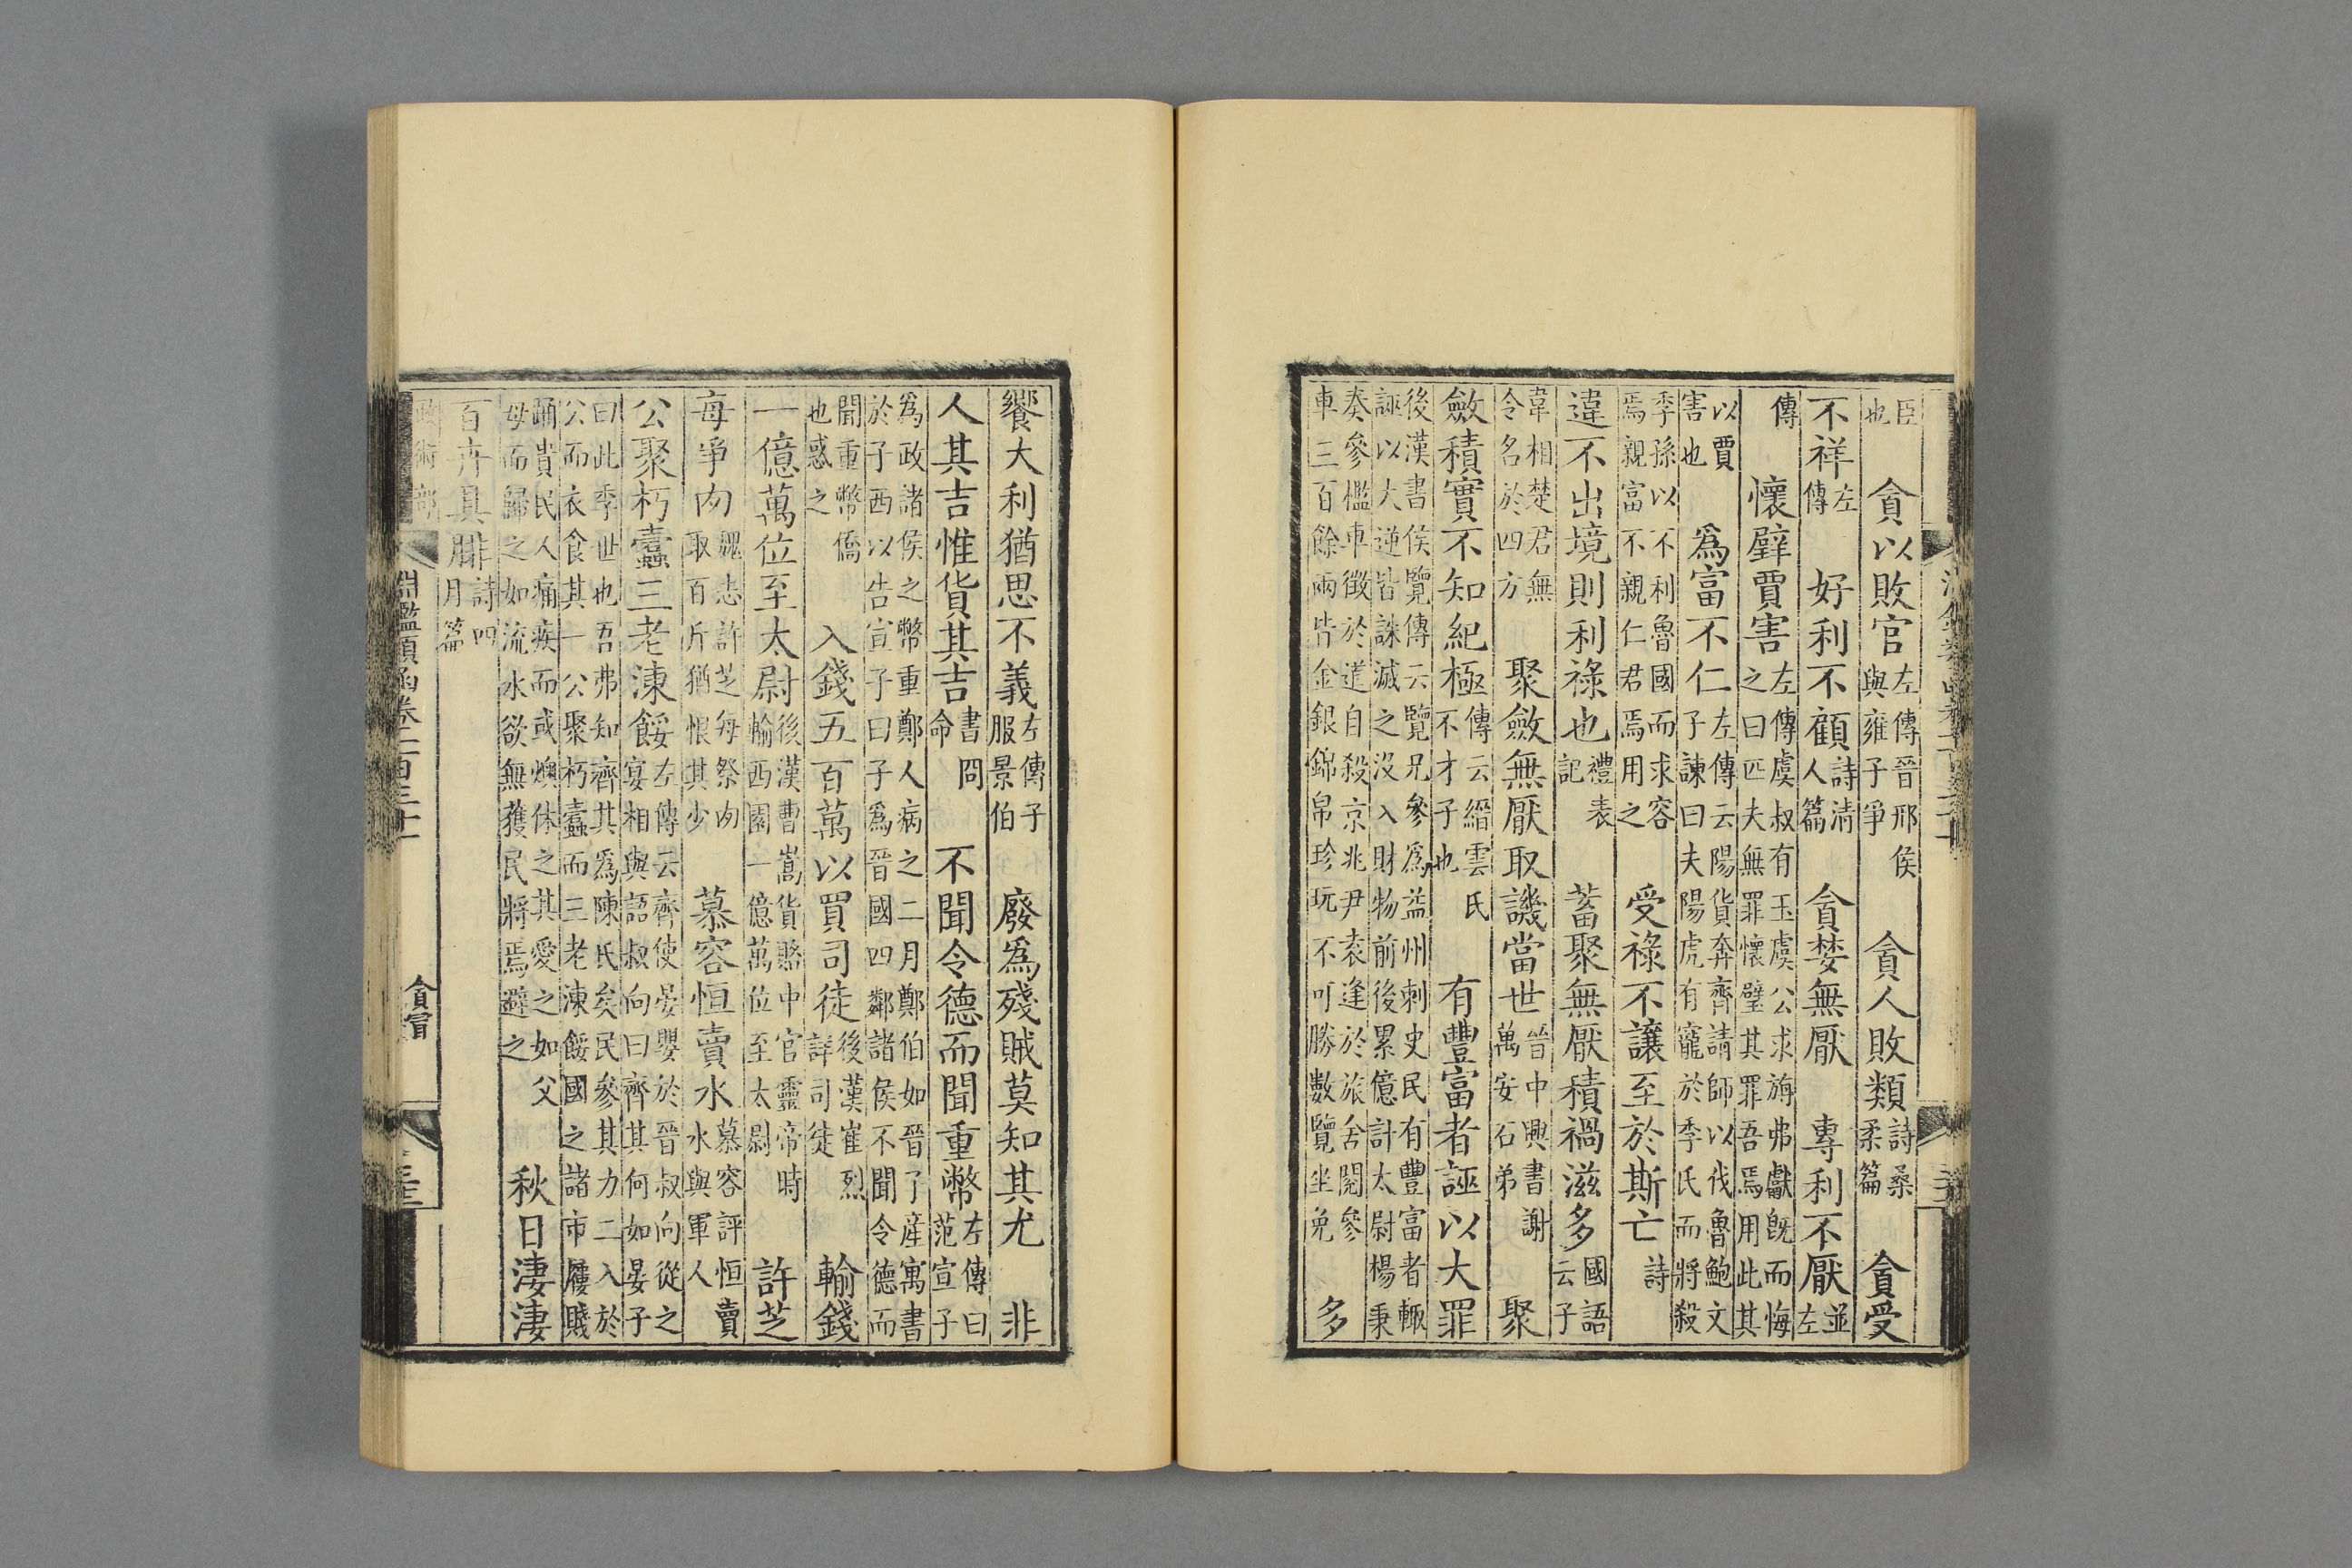 臣也 貪以敗官 左傳晉邢侯與雍子爭 貪人敗類 詩桑柔篇 貪受
不祥 左傳 好利不顧 詩清人篇 貪婪無厭 專利不厭 並左
傳 懷璧賈害 左傳虞叔有玉虞公求旃弗獻旣而悔之曰匹夫無罪懷璧其罪吾焉用此其
以賈害也 爲富不仁 左傳云陽貨奔齊請師以伐魯鮑文子諫曰夫陽虎有寵於季氏而將殺
季孫以不利魯國而求容焉親富不親仁君焉用之 受祿不讓至於斯亡 詩
違不出境則利祿也 禮表記 蓄聚無厭積禍滋多 國語云子
韋相楚君無令名於四方 聚斂無厭取譏當世 晉中興書謝萬安石弟 聚
斂積實不知紀極 傳云縉雲氏不才子也 有豐富者誣以大罪
後漢書侯覽傳云覽兄參爲益州刺史民有豐富者輒誣以大逆皆誅滅之沒入財物前後累億計太尉楊秉
奏參檻車徵於道自殺京兆尹袁逢於旅舍閱參車三百餘兩皆金銀錦帛珍玩不可勝數覽坐免 多
饗大利猶思不義 左傳子服景伯 廢爲殘賊莫知其尤 非
人其吉惟貨其吉 書冏命 不聞令德而聞重幣 左傳曰范宣子
爲政諸侯之幣重鄭人病之二月鄭伯如晉子産寓書於子西以告宣子曰子爲晉國四鄰諸侯不聞令德而
聞重幣僑也惑之 入錢五百萬以買司徒 後漢崔烈詳司徒 輸錢
一億萬位至太尉 後漢曹嵩貨賂中官靈帝時輸西園一億萬位至太尉 許芝
每爭肉 魏志許芝每祭肉取百斤猶恨其少 慕容恒賣水 慕容評恒賣水與軍人
公聚朽蠹三老凍餒 左傳云齊使晏嬰於晉叔向從之宴相與語叔向曰齊其何如晏子
曰此季世也吾弗知齊其爲陳氏矣民參其力二入於公而衣食其一公聚朽蠹而三老凍餒國之諸市屨賤
踊貴民人痛疾而或燠休之其愛之如父母而歸之如流水欲無獲民將焉避之 秋日淒淒
百卉具腓 詩四月篇
淵鑑類函卷 貪冒